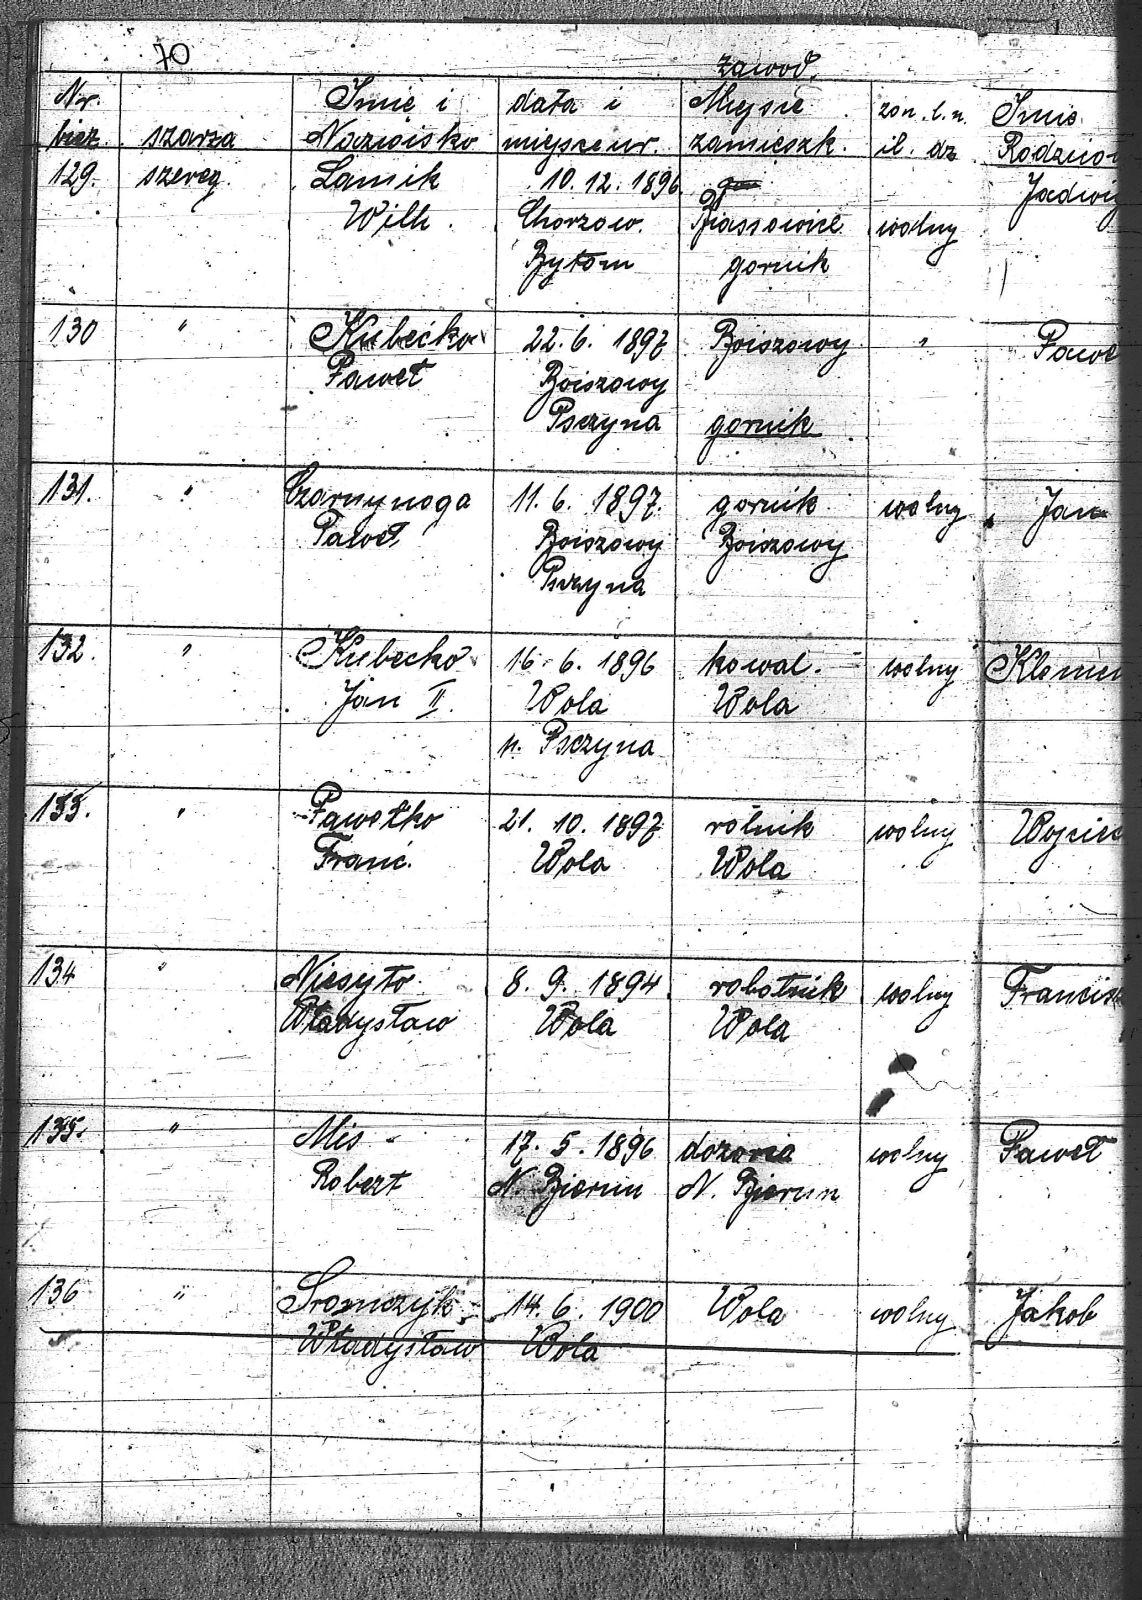 70
zawod.
Nr. Imię i data i Miejsce żon. l. n. Imie
bież. szarża Nazwisko miejsce ur. zamieszk. il. dz Rodzico
129. szereg. Lamik 10. 12. 1896 Jadwy
Wilh. Chorzow. wolny
Bytom gornik
130 " Kubećko 22. 6. 1897 Boiszowy " Pawe
Paweł Boiszowy
Psczyna gornik
131. " Czarnynoga 11. 6. 1897. gornik wolny Jan
Paweł Boiszowy Boiszowy
Psczyna
132. " Kubecko 16. 6. 1896 kowal. wolny Klemen
Jan II. Wola Wola
p. Psczyna
133. " Pawełko 21. 10. 1897 rolnik wolny Wojciec
Franc. Wola Wola
134 " Niesyto 8. 9. 1894 robotnik wolny Francisz
Władysław Wola Wola
135. " Mis 17. 5. 1896 wolny Paweł
Robert N. Bierun N. Bierun
136 " Sromczyk 14. 6. 1900 Wola wolny Jakob
Władysław Wola